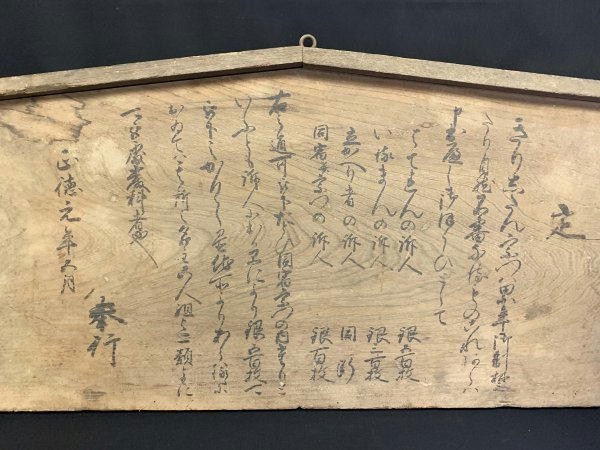 定
きりしたん宗門ハ累年御制禁
たり自然不審なるものこれあらハ
申出へし御ほうひとして
はてれんの訴人 銀五百枚
いるまんの訴人 銀三百枚
立かへり者の訴人 同断
同宿并宗門の訴人 銀百枚
右之通可被下たとひ同宿宗門の内たりと
いふとも訴人に出る品により銀五百枚可
被下之かくし置他所よりあらハるゝに
おゐてハ其所之名主并五人組迄一類ともに
可処厳科者也
正徳元年五月
奉行